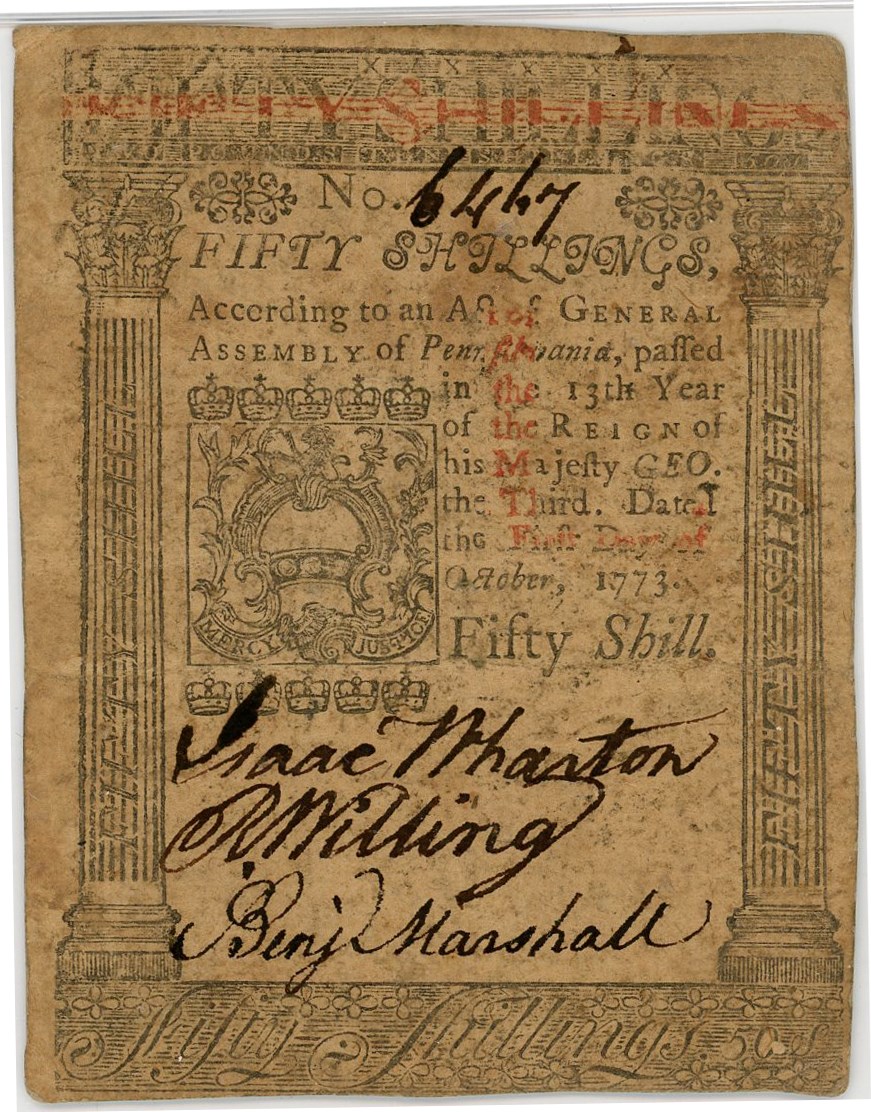 FIFTY SHILLINGS
No. 6447
FIFTY SHILLINGS,
According to an Act of GENERAL
ASSEMBLY of Pennsylvania, paſſed
in the 13th Year
of the REIGN of
his Majeſty GEO.
the Third. Dated
the Firſt Day of
October, 1773.
MERCY JUSTICE
Fifty Shill.
Isaac Wharton
R Willing
Benj Marshall
FIFTY SHILL
FIFTY SHILL
Fifty Shillings. 50 s